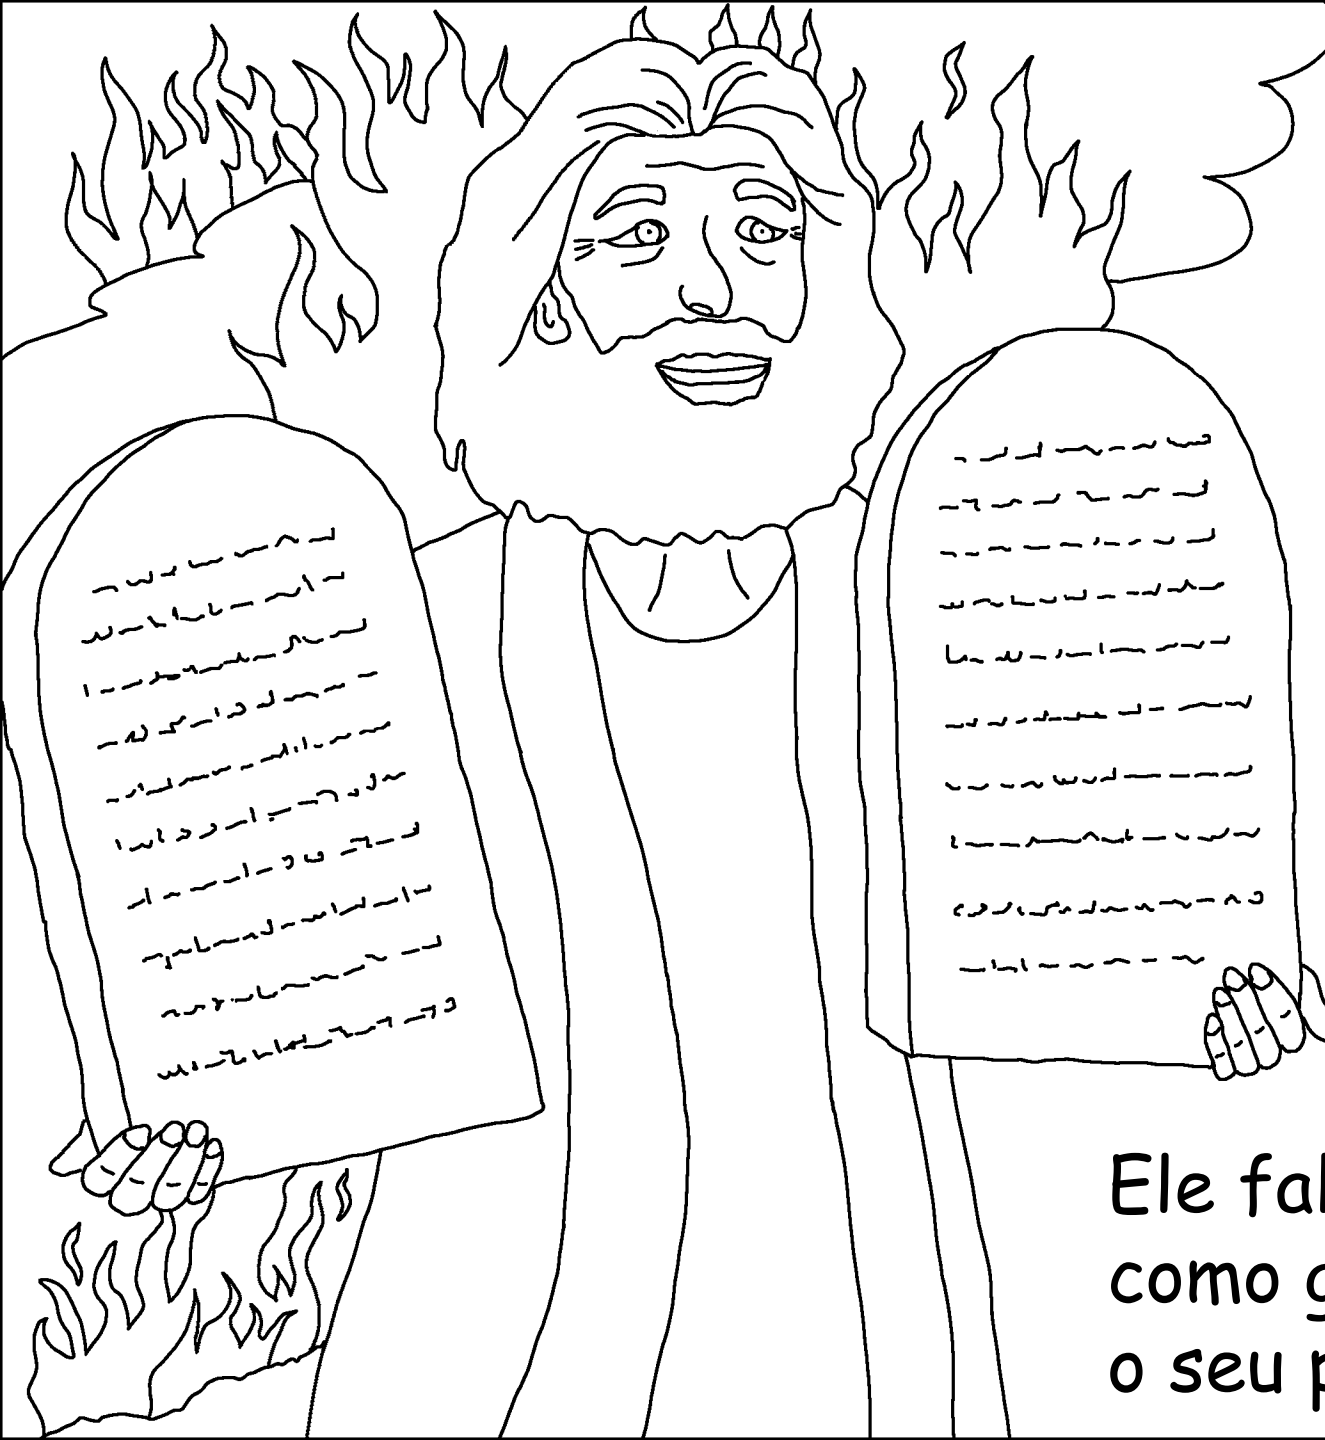 Ele fal
como g
o seu p